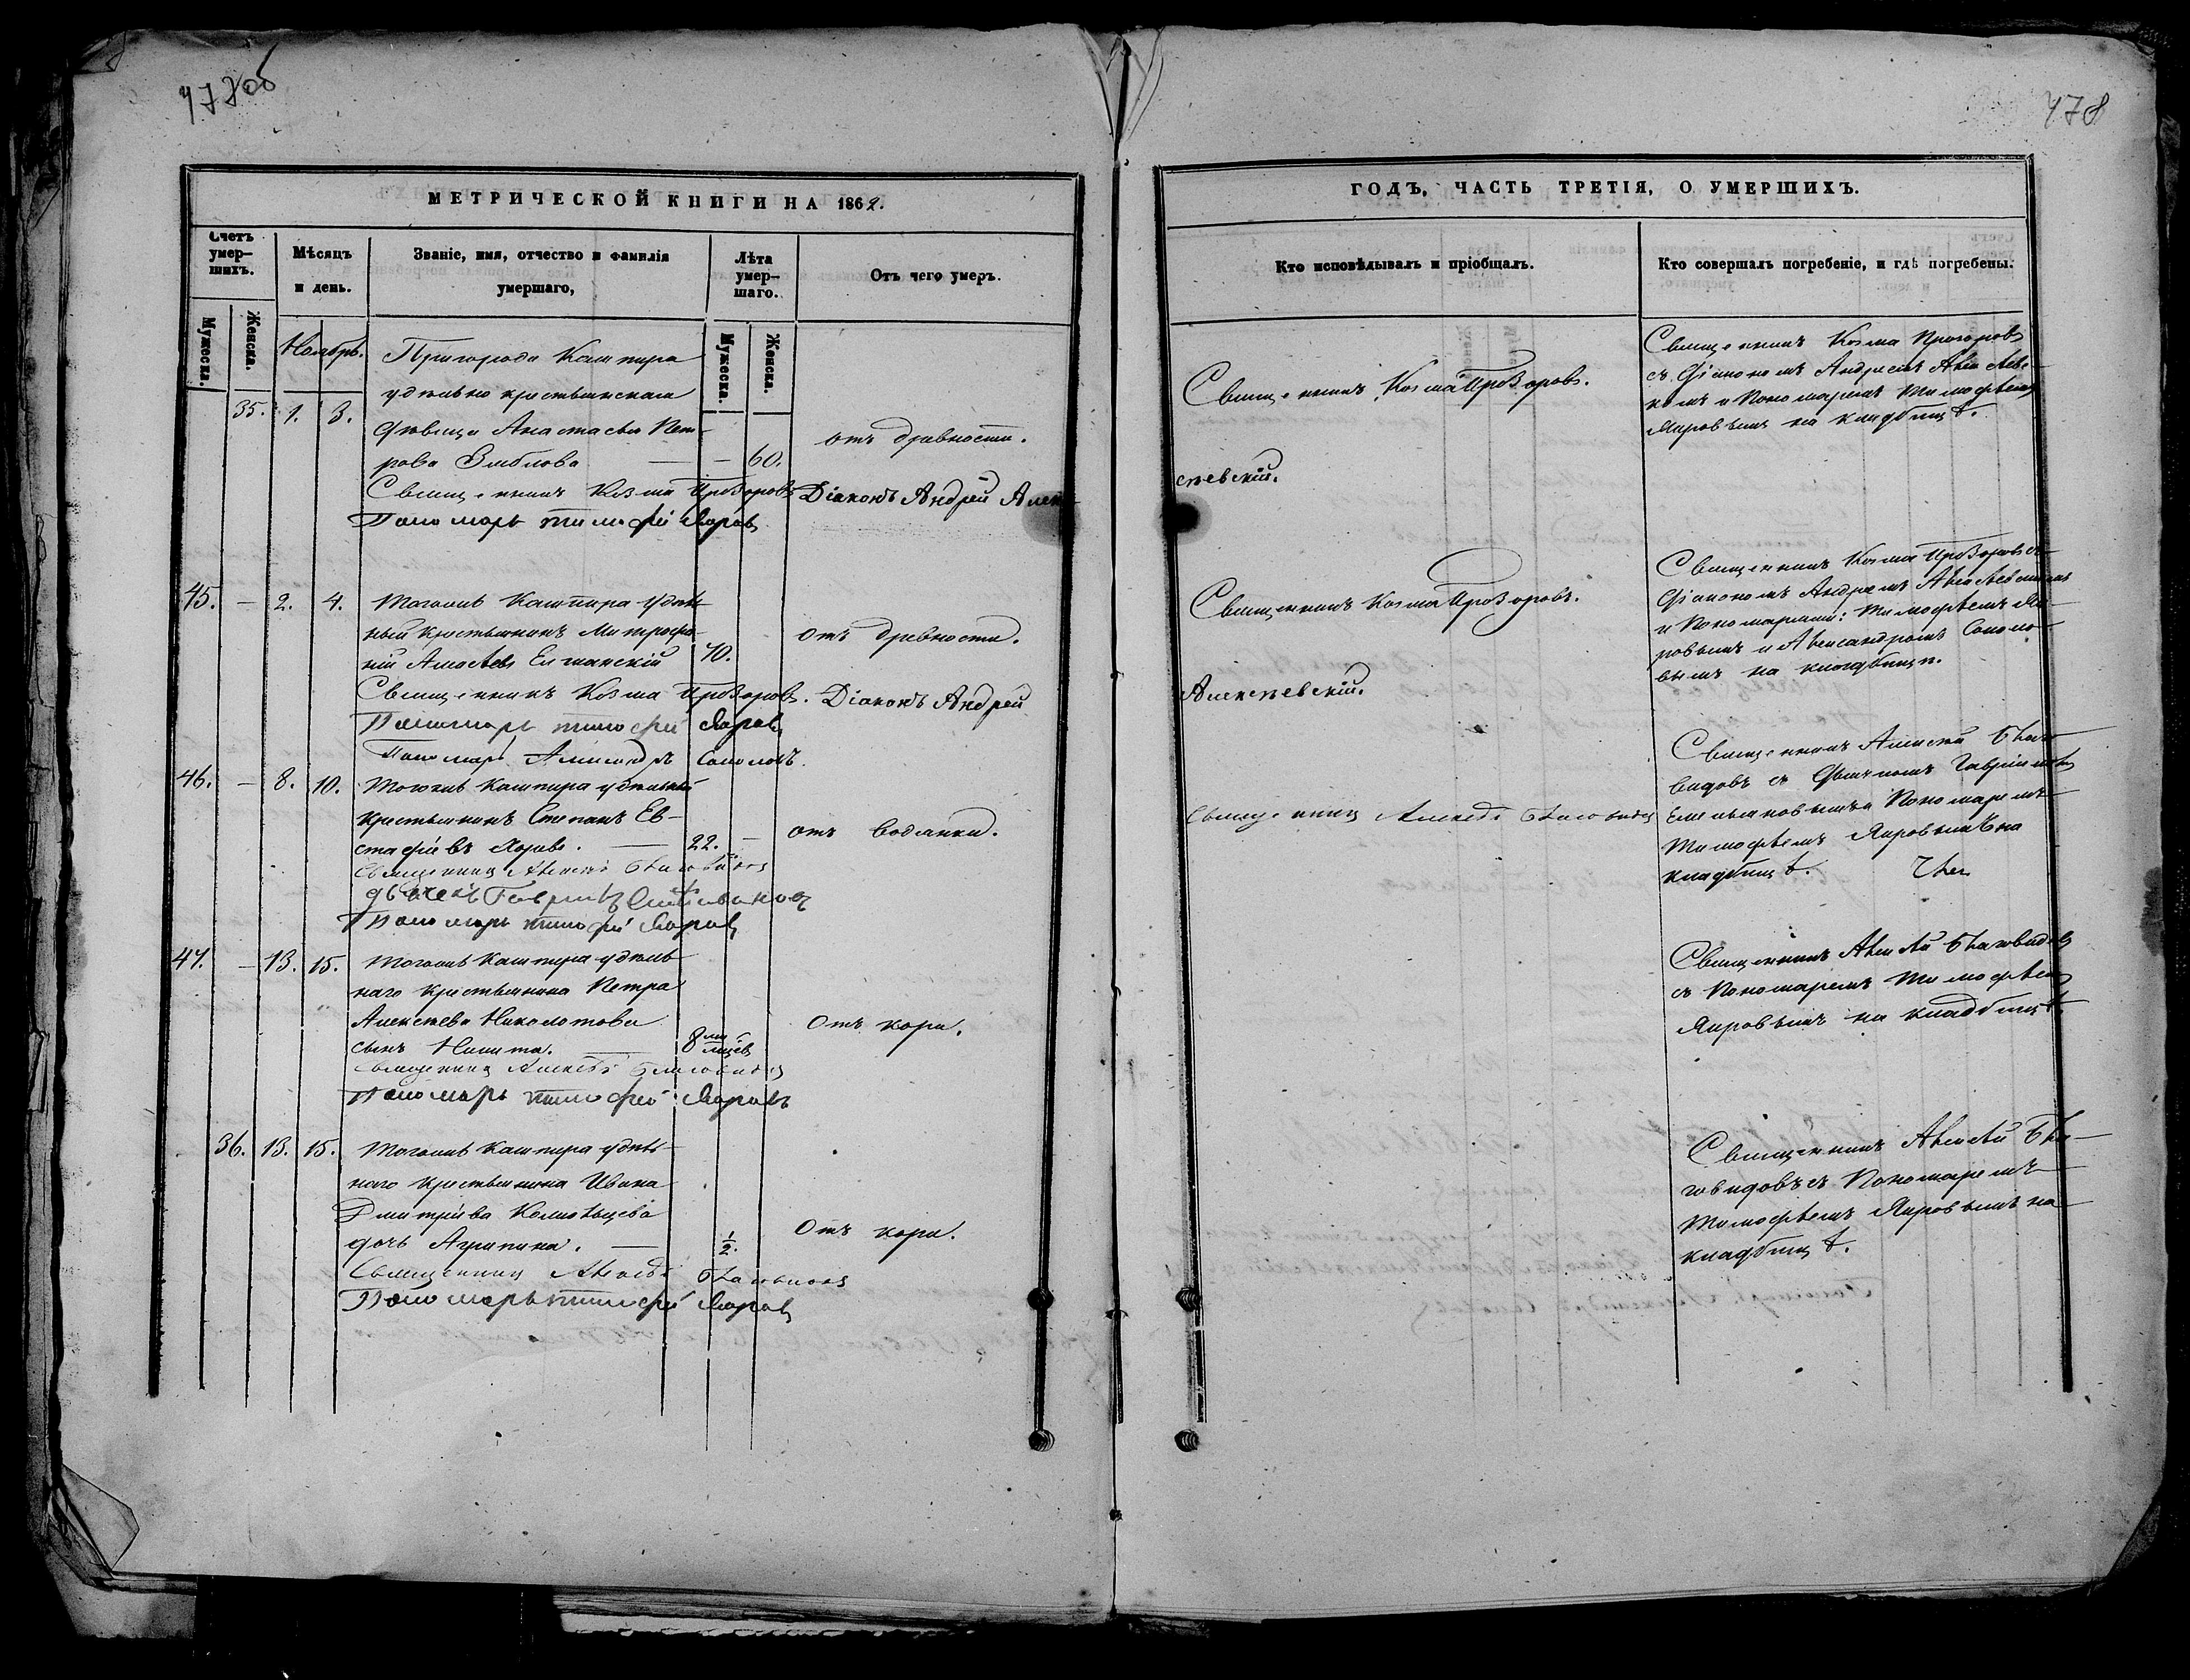 477об
478
МЕТРИЧЕСКОЙ КНИГИ НА 1862.
Счетъ умер-шихъ.
Мужеска.
Женска.
Мѣсяцъ и день.
Званіе, имя, отчество и фамилія умершаго,
Лѣта умер-шаго.
Мужеска.
Женска.
Отъ чего умеръ.
Ноябрь.
Пригорода Кашпира
удѣльно крестьянская
35. 1. 3. дѣвица Анастасья Пет-
рова — — 60. отъ древности.
Священникъ Козма Прозоровъ Діаконъ Андрей Алек
Пономарь Тимофей Яровъ
45. — 2. 4. Тогожъ Кашпира удѣль
ный крестьянинъ Митрофа-
ній Амосовъ 70. отъ древности.
Священникъ Козма Прозоровъ. Діаконъ Андрей
Пономарь Тимофей Яровъ
Пономарь Александръ Соколовъ.
46. — 8. 10. Тогожъ Кашпира удѣльный
крестьянинъ Степанъ Ев-
стафіевъ — 22. — отъ водянки.
Священникъ Алексѣй Благовидовъ
дьячекъ Гавріилъ Емельяновъ
Пономарь Тимофей Яровъ
47. — 13. 15. Тогожъ Кашпира удѣль
наго крестьянина Петра
Алексѣева
сынъ Никита. — 8ми мцев Отъ кори.
Священникъ Алексѣй Благовидовъ
Пономарь Тимофей Яровъ
36. 13. 15. Тогожъ Кашпира удѣль-
наго крестьянина Ивана
Дмитріева
дочь Агрипина. — 1/2. Отъ кори.
Священникъ Алексѣй Благовидовъ
Пономарь Тимофей Яровъ
ГОДЪ, ЧАСТЬ ТРЕТІЯ, О УМЕРШИХЪ.
Кто исповѣдывалъ и пріобщалъ.
Кто совершалъ погребеніе, и гдѣ погребены.
Священникъ Козма Прозоровъ.
сѣевскій.
Священникъ Козма Прозоровъ
съ Діакономъ Андреемъ Алексѣевс-
кимъ и Пономаремъ Тимофеемъ
Яровымъ на кладбищѣ.
Священникъ Козма Прозоровъ.
Алексѣевскій.
Священникъ Козма Прозоровъ съ
Діакономъ Андреемъ Алексѣевскимъ
и Пономарями: Тимофеемъ Яи-
ровымъ и Александромъ Соколо-
вымъ на кладбищѣ.
Священникъ Алексѣй Благовидовъ
Священникъ Алексѣй Благо-
видовъ съ Дьячкомъ Гавріиломъ
Емельяновымъ и Пономаремъ
Тимофеемъ Яировымъ на
кладбищѣ.
Священникъ Алексѣй Благовидовъ
съ Пономаремъ Тимофеемъ
Яировымъ на кладбищѣ.
Священникъ Алексѣй Бла-
говидовъ съ Пономаремъ
Тимофеемъ Яировымъ на
кладбищѣ.